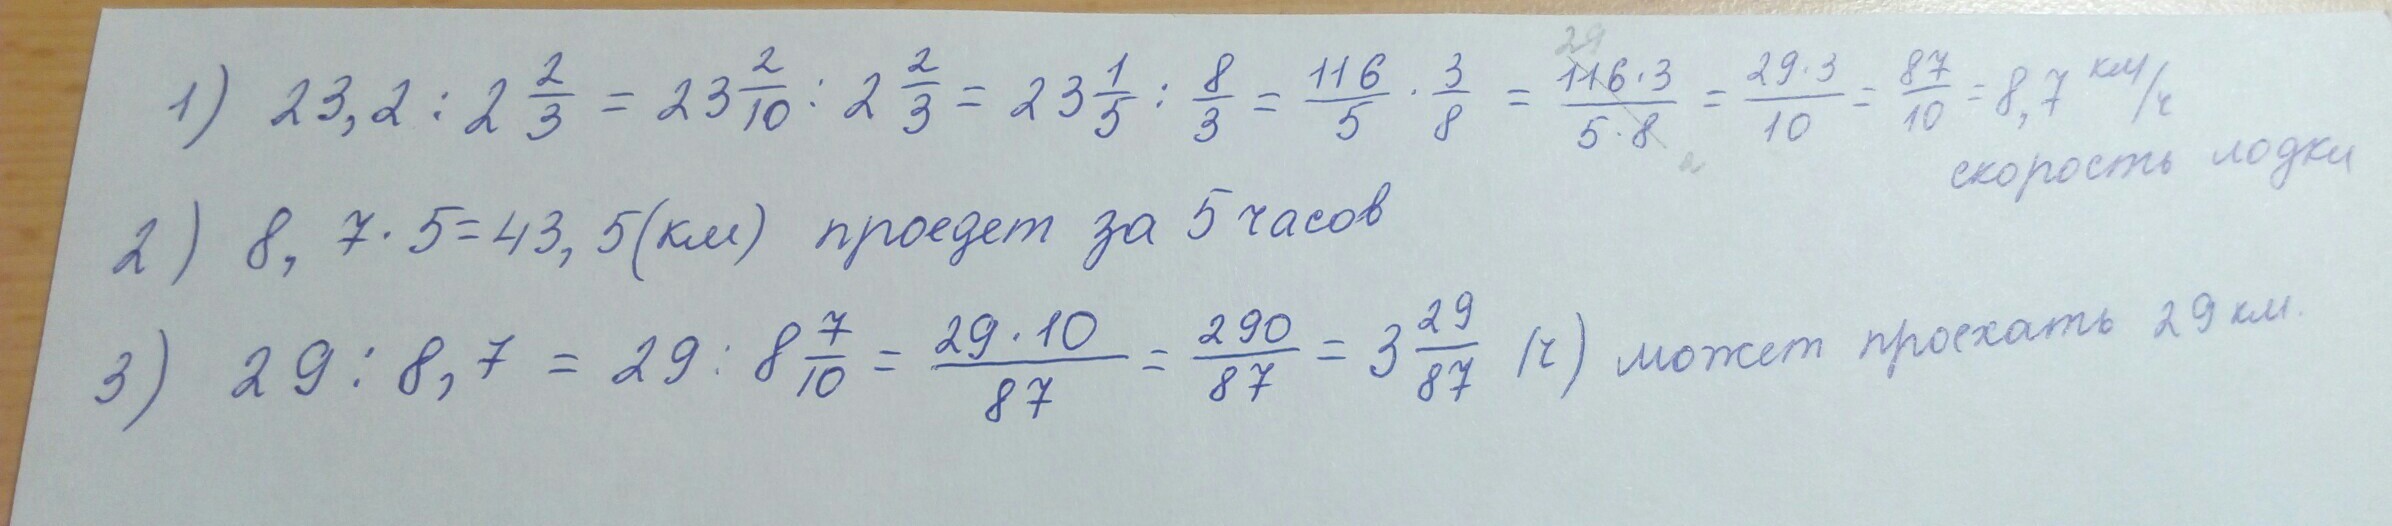 1) 23,2 : 2 2/3 = 23 2/10 : 2 2/3 = 23 1/5 : 8/3 = 116/5 · 3/8 = 116·3/5·8 = 29·3/10 = 87/10 = 8,7 км/ч
29
2
скорость лодки
2) 8,7·5=43,5(км) проедет за 5 часов
3) 29 : 8,7 = 29 : 8 7/10 = 29·10/87 = 290/87 = 3 29/87 (ч) может проехать 29 км.